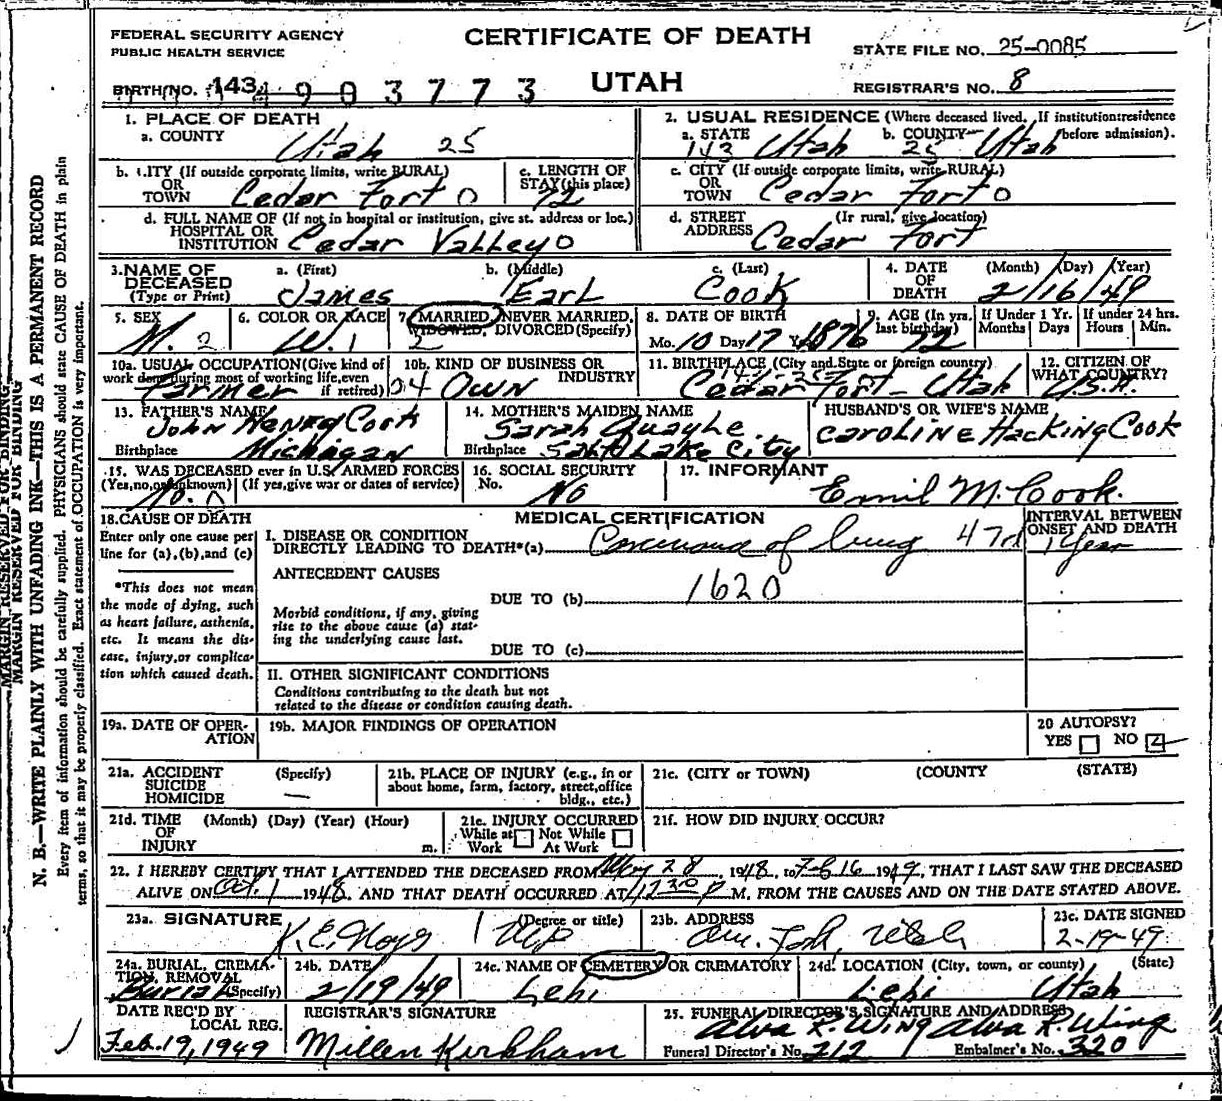 FEDERAL SECURITY AGENCY
PUBLIC HEALTH SERVICE
CERTIFICATE OF DEATH
UTAH
STATE FILE NO. 25-0085
REGISTRAR'S NO. 8
BIRTH NO. 143 4903773
1. PLACE OF DEATH
a. COUNTY Utah 25
2. USUAL RESIDENCE (Where deceased lived. If institution: residence before admission).
a. STATE 143 Utah b. COUNTY 25 Utah
b. CITY (If outside corporate limits, write RURAL) OR TOWN Cedar Fort 0
c. LENGTH OF STAY (this place) 72
c. CITY (If outside corporate limits, write RURAL) OR TOWN Cedar Fort 0
d. FULL NAME OF (If not in hospital or institution, give st. address or loc.) HOSPITAL OR INSTITUTION Cedar Valley 0
d. STREET ADDRESS (If rural, give location) Cedar Fort
3. NAME OF DECEASED (Type or Print)
a. (First) James b. (Middle) Earl c. (Last) Cook
4. DATE OF DEATH (Month) (Day) (Year) 2/16/49
5. SEX M. 2
6. COLOR OR RACE W. 1
7. MARRIED, NEVER MARRIED, WIDOWED, DIVORCED (Specify) 2
8. DATE OF BIRTH Mo. 10 Day 17 Yr. 1876
9. AGE (In yrs. last birthday) 72
If Under 1 Yr. Months Days
If under 24 hrs. Hours Min.
10a. USUAL OCCUPATION (Give kind of work done during most of working life, even if retired) Farmer
10b. KIND OF BUSINESS OR INDUSTRY 04 Own
11. BIRTHPLACE (City and State or foreign country) Cedar Fort - Utah
12. CITIZEN OF WHAT COUNTRY? U.S.A.
13. FATHER'S NAME John Henry Cook
Birthplace Michigan
14. MOTHER'S MAIDEN NAME Sarah Quayle
Birthplace Salt Lake City
HUSBAND'S OR WIFE'S NAME
Caroline Hacking Cook
15. WAS DECEASED ever in U.S. ARMED FORCES
(Yes, no, or unknown) (If yes, give war or dates of service) No. 0
16. SOCIAL SECURITY No. No
17. INFORMANT
Emil M. Cook.
18. CAUSE OF DEATH
Enter only one cause per line for (a), (b), and (c)
*This does not mean the mode of dying, such as heart failure, asthenia, etc. It means the disease, injury, or complication which caused death.
MEDICAL CERTIFICATION
INTERVAL BETWEEN ONSET AND DEATH
I. DISEASE OR CONDITION DIRECTLY LEADING TO DEATH*(a) Carcinoma of lung 47d 1 Year
ANTECEDENT CAUSES
DUE TO (b) 1620
Morbid conditions, if any, giving rise to the above cause (a) stating the underlying cause last.
DUE TO (c)
II. OTHER SIGNIFICANT CONDITIONS
Conditions contributing to the death but not related to the disease or condition causing death.
19a. DATE OF OPERATION
19b. MAJOR FINDINGS OF OPERATION
20 AUTOPSY?
YES NO
21a. ACCIDENT SUICIDE HOMICIDE (Specify) —
21b. PLACE OF INJURY (e.g., in or about home, farm, factory, street, office bldg., etc.)
21c. (CITY or TOWN) (COUNTY (STATE)
21d. TIME OF INJURY (Month) (Day) (Year) (Hour) m.
21e. INJURY OCCURRED
While at Work Not While At Work
21f. HOW DID INJURY OCCUR?
22. I HEREBY CERTIFY THAT I ATTENDED THE DECEASED FROM 28, 1948, to Feb 16 1949, THAT I LAST SAW THE DECEASED
ALIVE ON Oct. 1 1948 AND THAT DEATH OCCURRED AT 12 30 P M. FROM THE CAUSES AND ON THE DATE STATED ABOVE.
23a. SIGNATURE (Degree or title) K. E. MD
23b. ADDRESS Am. Fork, Utah
23c. DATE SIGNED 2-19-49
24a. BURIAL, CREMATION, REMOVAL (Specify) Burial
24b. DATE 2/19/49
24c. NAME OF CEMETERY OR CREMATORY Lehi
24d. LOCATION (City, town, or county) (State) Lehi Utah
DATE REC'D BY LOCAL REG. Feb. 19, 1949
REGISTRAR'S SIGNATURE
Millen Kirkham
25. FUNERAL DIRECTOR'S SIGNATURE AND ADDRESS
Alva R. Wing Alva R. Wing
Funeral Director's No. 212 Embalmer's No. 320
MARGIN RESERVED FOR BINDING
MARGIN RESERVED FOR BINDING
N. B.—WRITE PLAINLY WITH UNFADING INK—THIS IS A PERMANENT RECORD
Every item of information should be carefully supplied. PHYSICIANS should state CAUSE OF DEATH in plain
terms, so that it may be properly classified. Exact statement of OCCUPATION is very important.